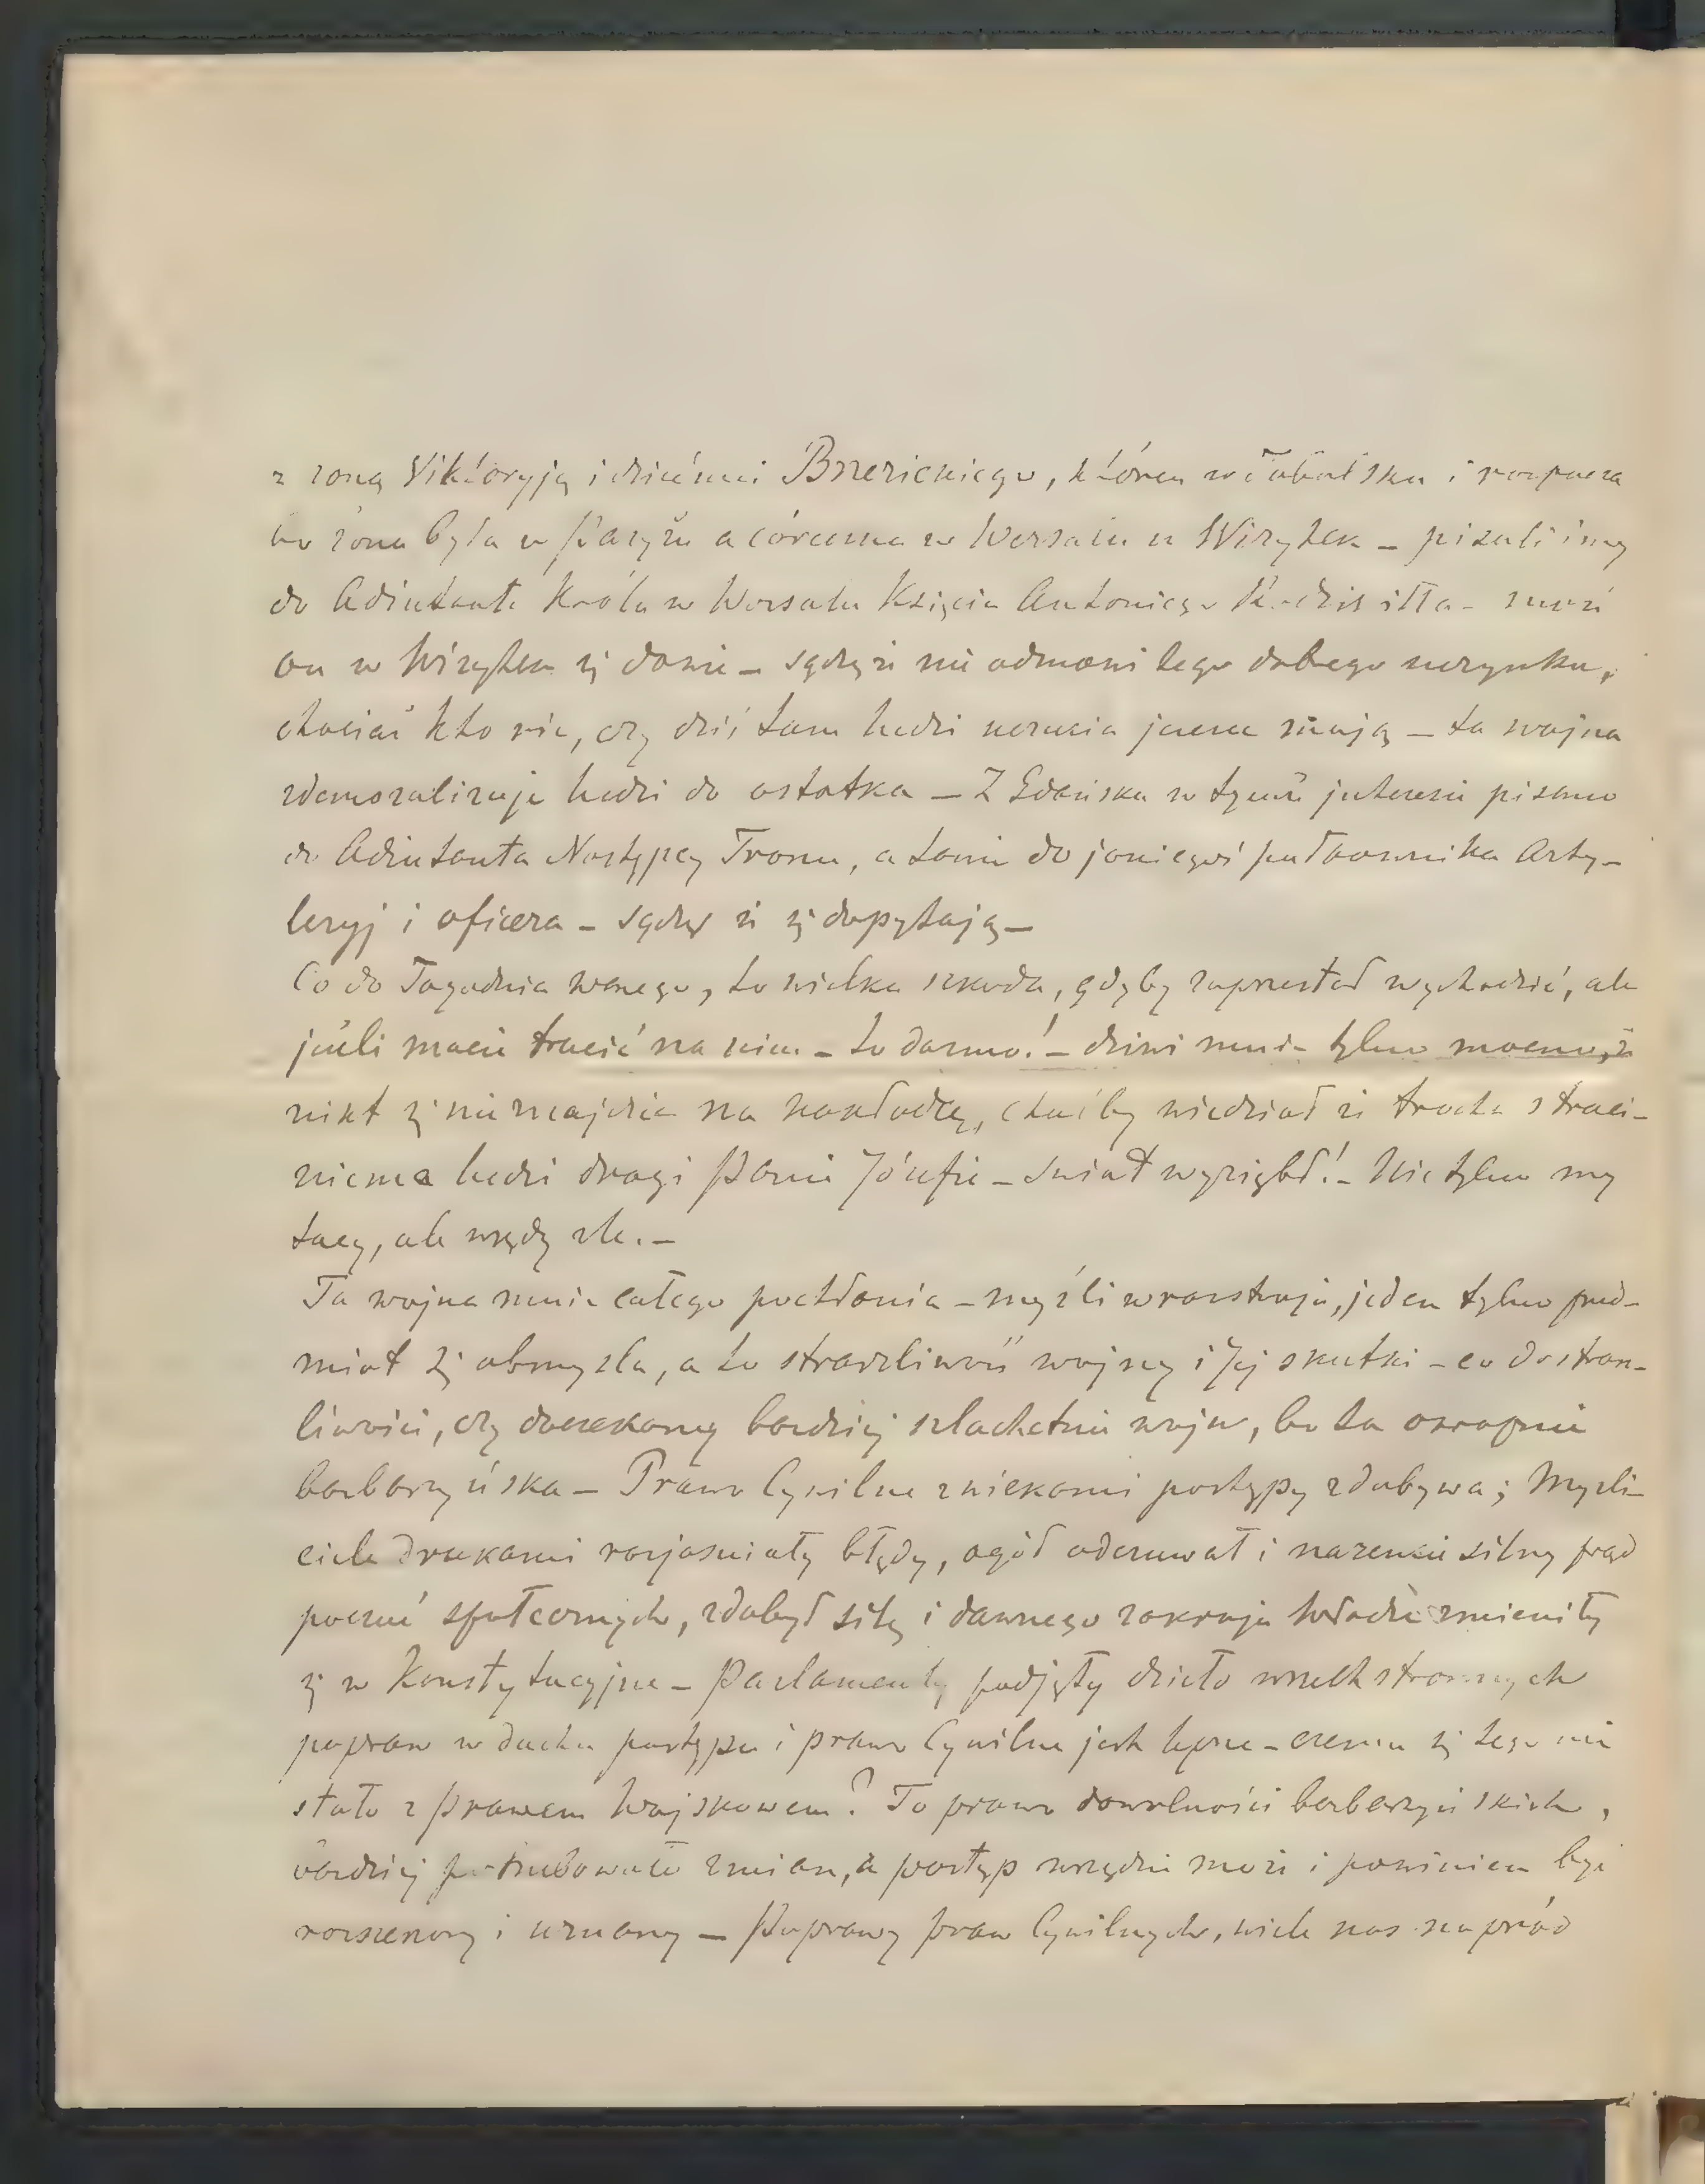 z żoną Viktoryją i dziećmi Brzezickiego, któren w Tobolsku i rozpacza
bo żona była w Paryżu a córeczka w Wersalu u Wizytek – pisaliśmy
do Adiutanta Króla w Wersalu Księcia Antoniego Radziwiłła – może
on w Wizytek się dowie – sądzę że nie odmówi tego dobrego uczynku,
chociaż kto wie, czy dziś tam ludzi uczucia jeszcze mają – ta wojna
zdemoralizuje ludzi do ostatka – Z Gdańska w tymże interesie pisano
do Adiutanta Następcy Tronu, a tamże do jakiegoś pułkownika Arty-
leryj i oficera – sądzę że się dopytają –
Co do Tygodnia waszego, to wielka szkoda, gdyby zaprzestał wychodzić, ale
jeżeli macie tracić na nim – to darmo! – dziwi mnie tylko mocno, że
nikt się nie znajdzie na nakładcę, choćby wiedział że trochę straci –
niema ludzi drogi Panie Józefie – świat wyziębł! – Nie tylko my
tacy, ale wszędy źle. –
Ta wojna mnie całego pochłania – myśli w rozstroju, jeden tylko przed-
miot się obmyśla, a to straszliwość wojny i Jej skutki – co do stras-
liwości, czy doczekamy bardziej szlachetnie wojn, bo ta okropnie
barbarzyńska – Prawo Cywilne z wiekami postępy zdobywa; Myśli-
ciele drukami rozjaśniały błędy, ogół odczuwał i nareszcie silny prąd
poczuć społecznych, zdobył siłę i dawnego zakroju Władze zmieniły
się w Konstytucyjne – Parlamenty podjęły dzieło wszechstronnych
popraw w duchu postępu i prawo Cywilne jest lepsze – czemu się tego nie
stało z prawem Wojskowem? To prawo dowolności barbarzyńskich,
bardziej potrzebowało zmian, a postęp wszędzie może i powinien być
rozszerzony i uznany – Poprawy praw Cywilnych, wiele nas naprzód